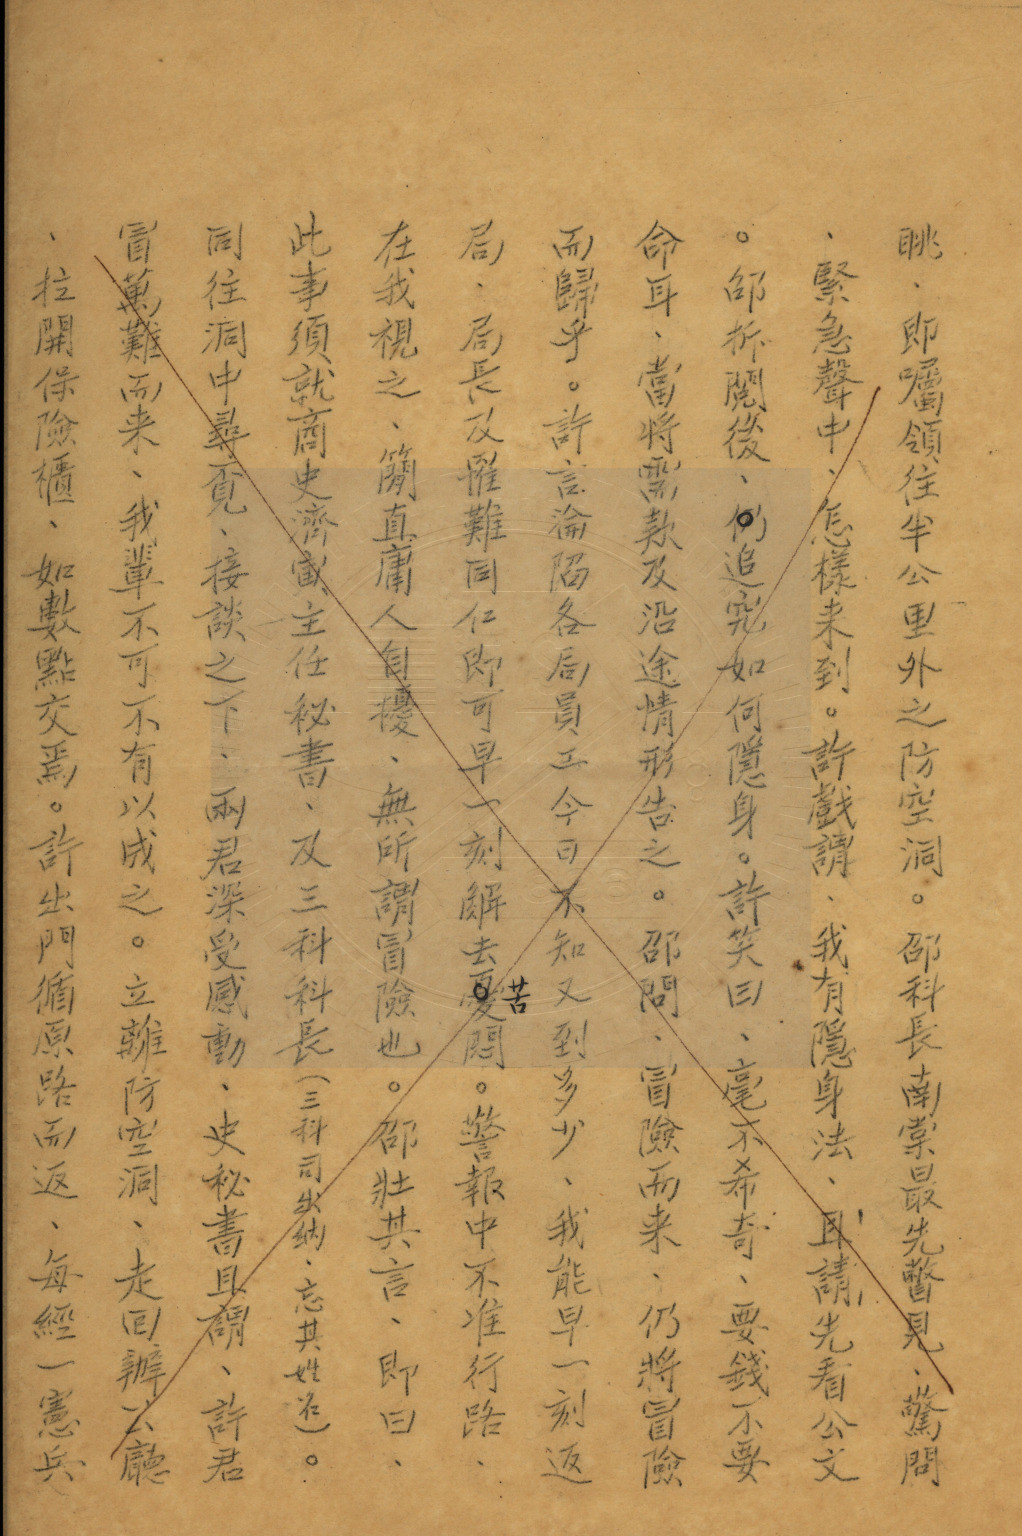 眺、即囑領往半公里外之防空洞。邵科長南棠最先瞥見、驚問
、緊急聲中、怎樣来到。許戲謂、我有隱身法、且請先看公文
。邵拆閱後、仍追究如何隱身。許笑曰、毫不希奇、要錢不要
命耳、當將需款及沿途情形告之。邵問、冒險而来、仍將冒險
而歸乎。許言淪陷各局員工今日不知又到多少、我能早一刻返
局、局長及罹難同仁即可早一刻解去憂悶。警報中不准行路、
苦
在我視之、簡直庸人自擾、無所謂冒險也。邵壯其言、即曰、
此事須就商史濟寰主任秘書、及三科科長（三科司出納、忘其姓名）。
同往洞中尋覓、接談之下、兩君深受感動、史秘書且謂、許君
冒萬難而来、我輩不可不有以成之。立離防空洞、走回辦公廳
、拉開保險櫃、如數點交焉。許出門循原路而返、每經一憲兵